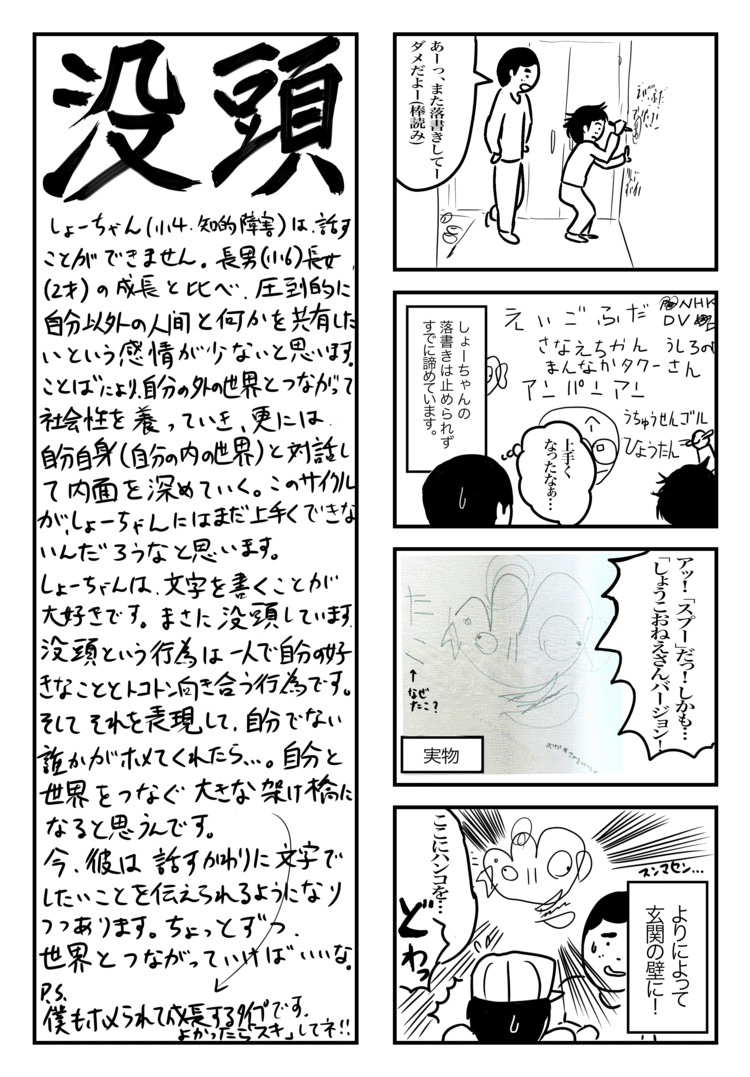 あーっ、また落書きしてー
ダメだよー(棒読み)
えいごふだ
NHK
DV
さなえちゃん
うしろの
まんなかタクーさん
アンパンアン
うちゅうせんゴル
ひょうたん
しょーちゃんの
落書きは止められず
すでに諦めています。
上手く
なったなぁ…
アッ!「スプー」だっ!しかも…
「しょうこおねえさんバージョン!」
たこ
↑
なぜ
たこ?
実物
よりによって
玄関の壁に!
スンマセン…
ここにハンコを…
どわっ
没頭
しょーちゃん(小4.知的障害)は、話す
ことができません。長男(小6)長女
(2才)の成長と比べ、圧倒的に
自分以外の人間と何かを共有した
いという感情が少ないと思います。
ことばにより、自分の外の世界とつながって
社会性を養っていき、更には、
自分自身(自分の内の世界)と対話し
て内面を深めていく。このサイクル
が、しょーちゃんにはまだ上手くできな
いんだろうなと思います。
しょーちゃんは、文字を書くことが
大好きです。まさに没頭しています。
没頭という行為は一人で自分の好
きなこととトコトン向き合う行為です。
そしてそれを表現して、自分でない
誰かがホメてくれたら…。自分と
世界をつなぐ大きな架け橋に
なると思うんです。
今、彼は話すかわりに文字で
したいことを伝えられるようになり
つつあります。ちょっとずつ、
世界とつながっていけばいいな。
P.S.
僕もホメられて成長するタイプです。
よかったら「スキ」してネ!!